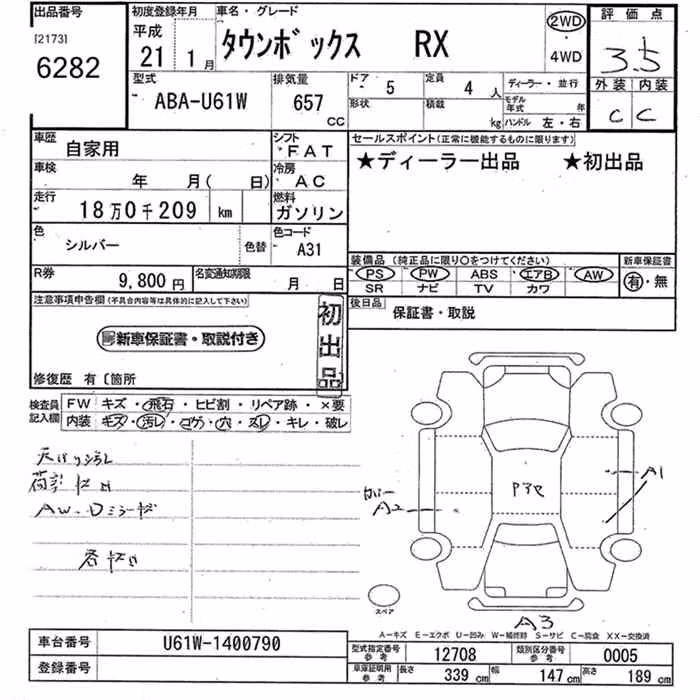 出品番号
[2173]
6282
初度登録年月
平成
21 1月
車名・グレード
タウンボックス RX
2WD
・
4WD
評価点
3.5
外装 内装
C C
型式
ABA-U61W
排気量
657
CC
ドア
5
定員
4 人
形状
積載
kg
ディーラー・並行
モデル年式 年
ハンドル 左・右
車歴
自家用
シフト
FAT
車検
年 月( 日)
冷房
AC
走行
18万0千209 km
燃料
ガソリン
色
シルバー
色替
色コード
A31
R券
9,800円
名変通知期限
月 日
セールスポイント(正常に機能するものに限ります)
★ディーラー出品 ★初出品
装備品(純正品に限り〇をつけてください)
PS PW ABS エアB AW
SR ナビ TV カワ
新車保証書
有・無
後日品
保証書・取説
注意事項申告欄(不具合内容等は具体的に記入して下さい)
新車保証書・取説付き
初出品
修復歴 有〔箇所
検査員記入欄
FW キズ・飛石・ヒビ割・リペア跡・×要
内装 キズ・汚レ・コゲ・穴・スレ・キレ・破レ
天バリ汚レ
AW・Dミラーキズ
A1
A2
A3
スペア
A-キズ E-エクボ U-凹み W-補修跡 S-サビ C-腐食 XX-交換済
車台番号
U61W-1400790
登録番号
型式指定番号
参考
12708
類別区分番号
参考
0005
車庫証明用
参考
長さ 339 cm
幅 147 cm
高さ 189 cm